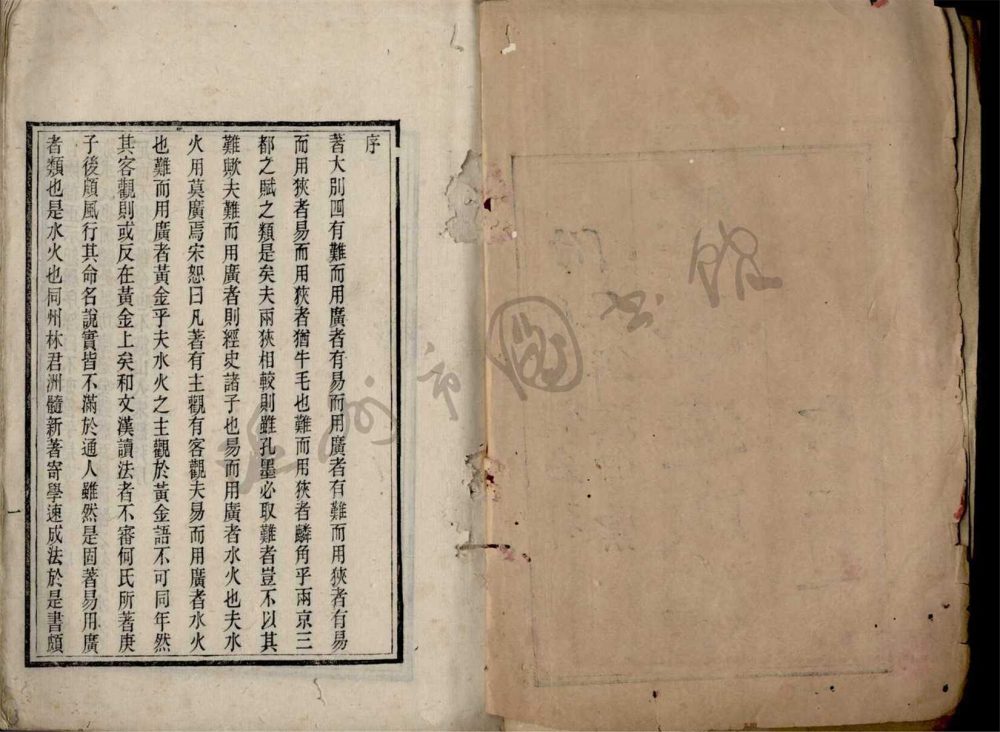 序
著大別四有難而用廣者有易而用廣者有難而用狹者有易
而用狹者易而用狹者猶牛毛也難而用狹者麟角乎兩京三
都之賦之類是矣夫兩狹相較則雖孔墨必取難者豈不以其
難歟夫難而用廣者則經史諸子也易而用廣者水火也夫水
火用莫廣焉宋恕曰凡著有主觀有客觀夫易而用廣者水火
也難而用廣者黃金乎夫水火之主觀於黃金語不可同年然
其客觀則或反在黃金上矣和文漢讀法者不審何氏所著庚
子後頗風行其命名說實皆不滿於通人雖然是固著易用廣
者類也是水火也同州林君洲髓新著寄學速成法於是書頗
溫州市圖書館